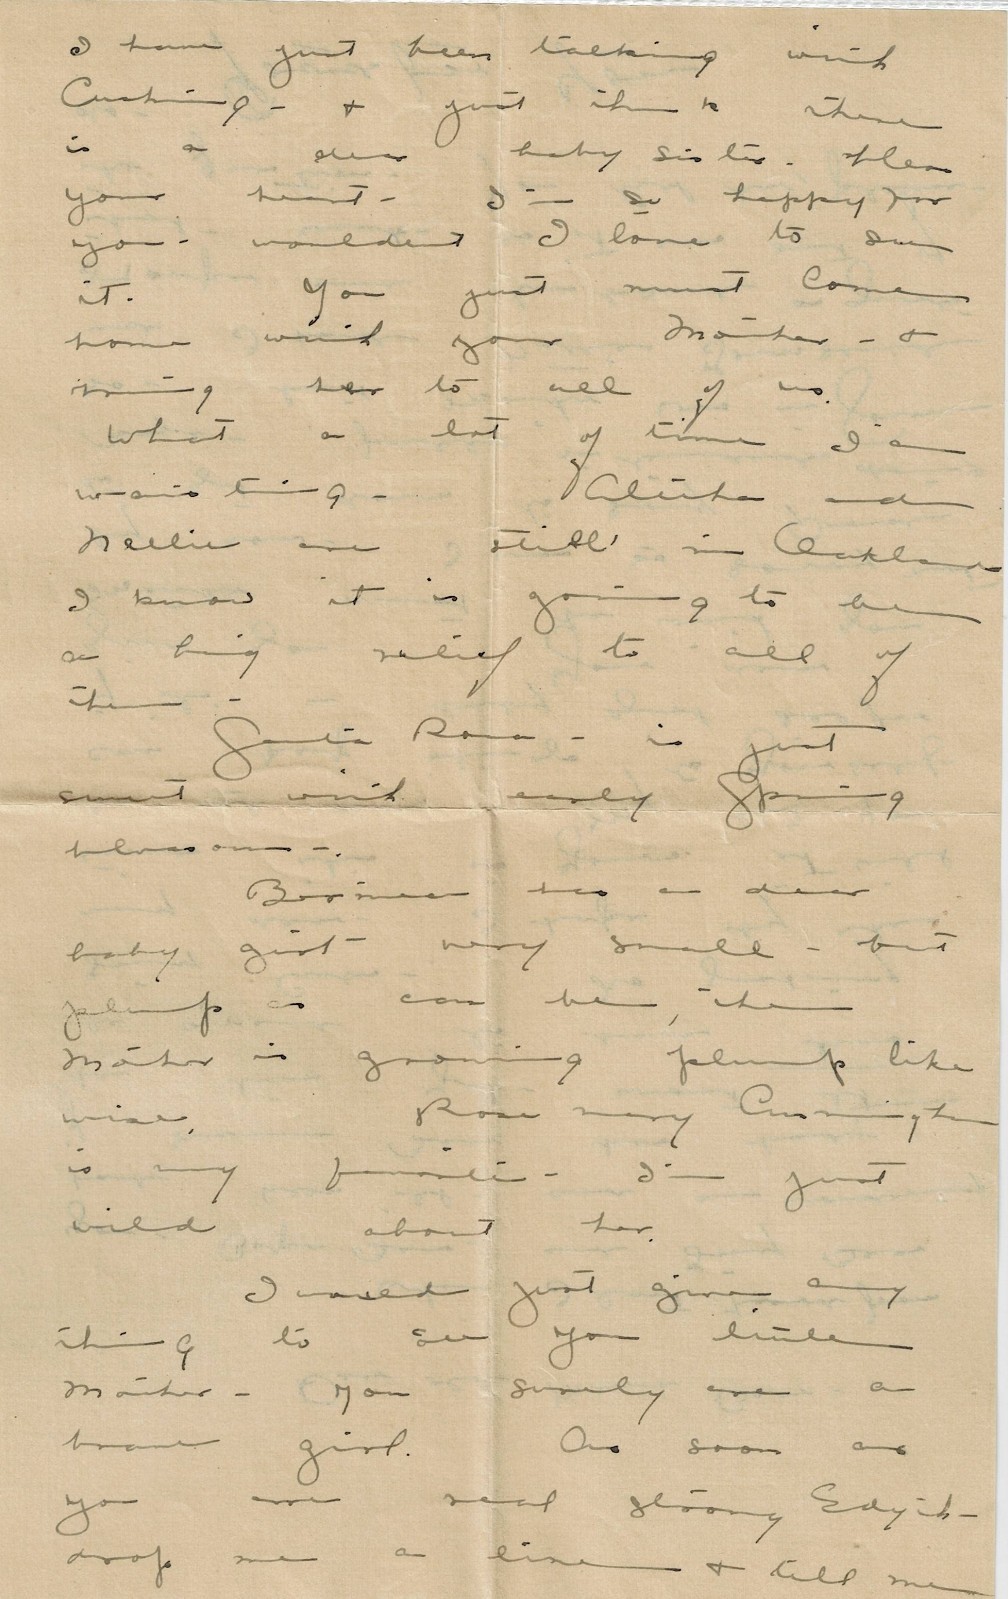 I have just been talking with
Cushing - + just think there
is a dear baby sister. bless
your heart - I'm so happy for
you - wouldent I love to see
it. You just must come
home with your Mother - +
bring her to all of us.
What a lot of time I am
waisting - Aletha and
Nellie are still in Oakland
I know it is going to be
a big relief to all of
them -
Santa Rosa - is just
sweet with early Spring
blossoms -.
Bernice has a dear
baby girl - very small - but
plump as can be, the
Mother is growing plump like
wise. Rose mary Cunningham
is my favorite - I'm just
wild about her.
I would just give any
thing to see you little
Mother - you surely are a
brave girl. As soon as
you are real strong Edyth -
drop me a line + tell me